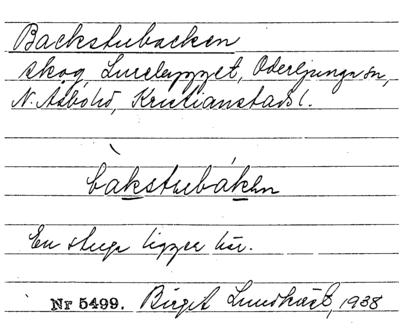 Backstubacken
skog, Lurelyzzet, Oderljunga sn,
N. Åsbohd, Kristianstads l.
bàkstubákən
En stuga ligger här.
Nr 5499. Birgit Lundkvist, 1938